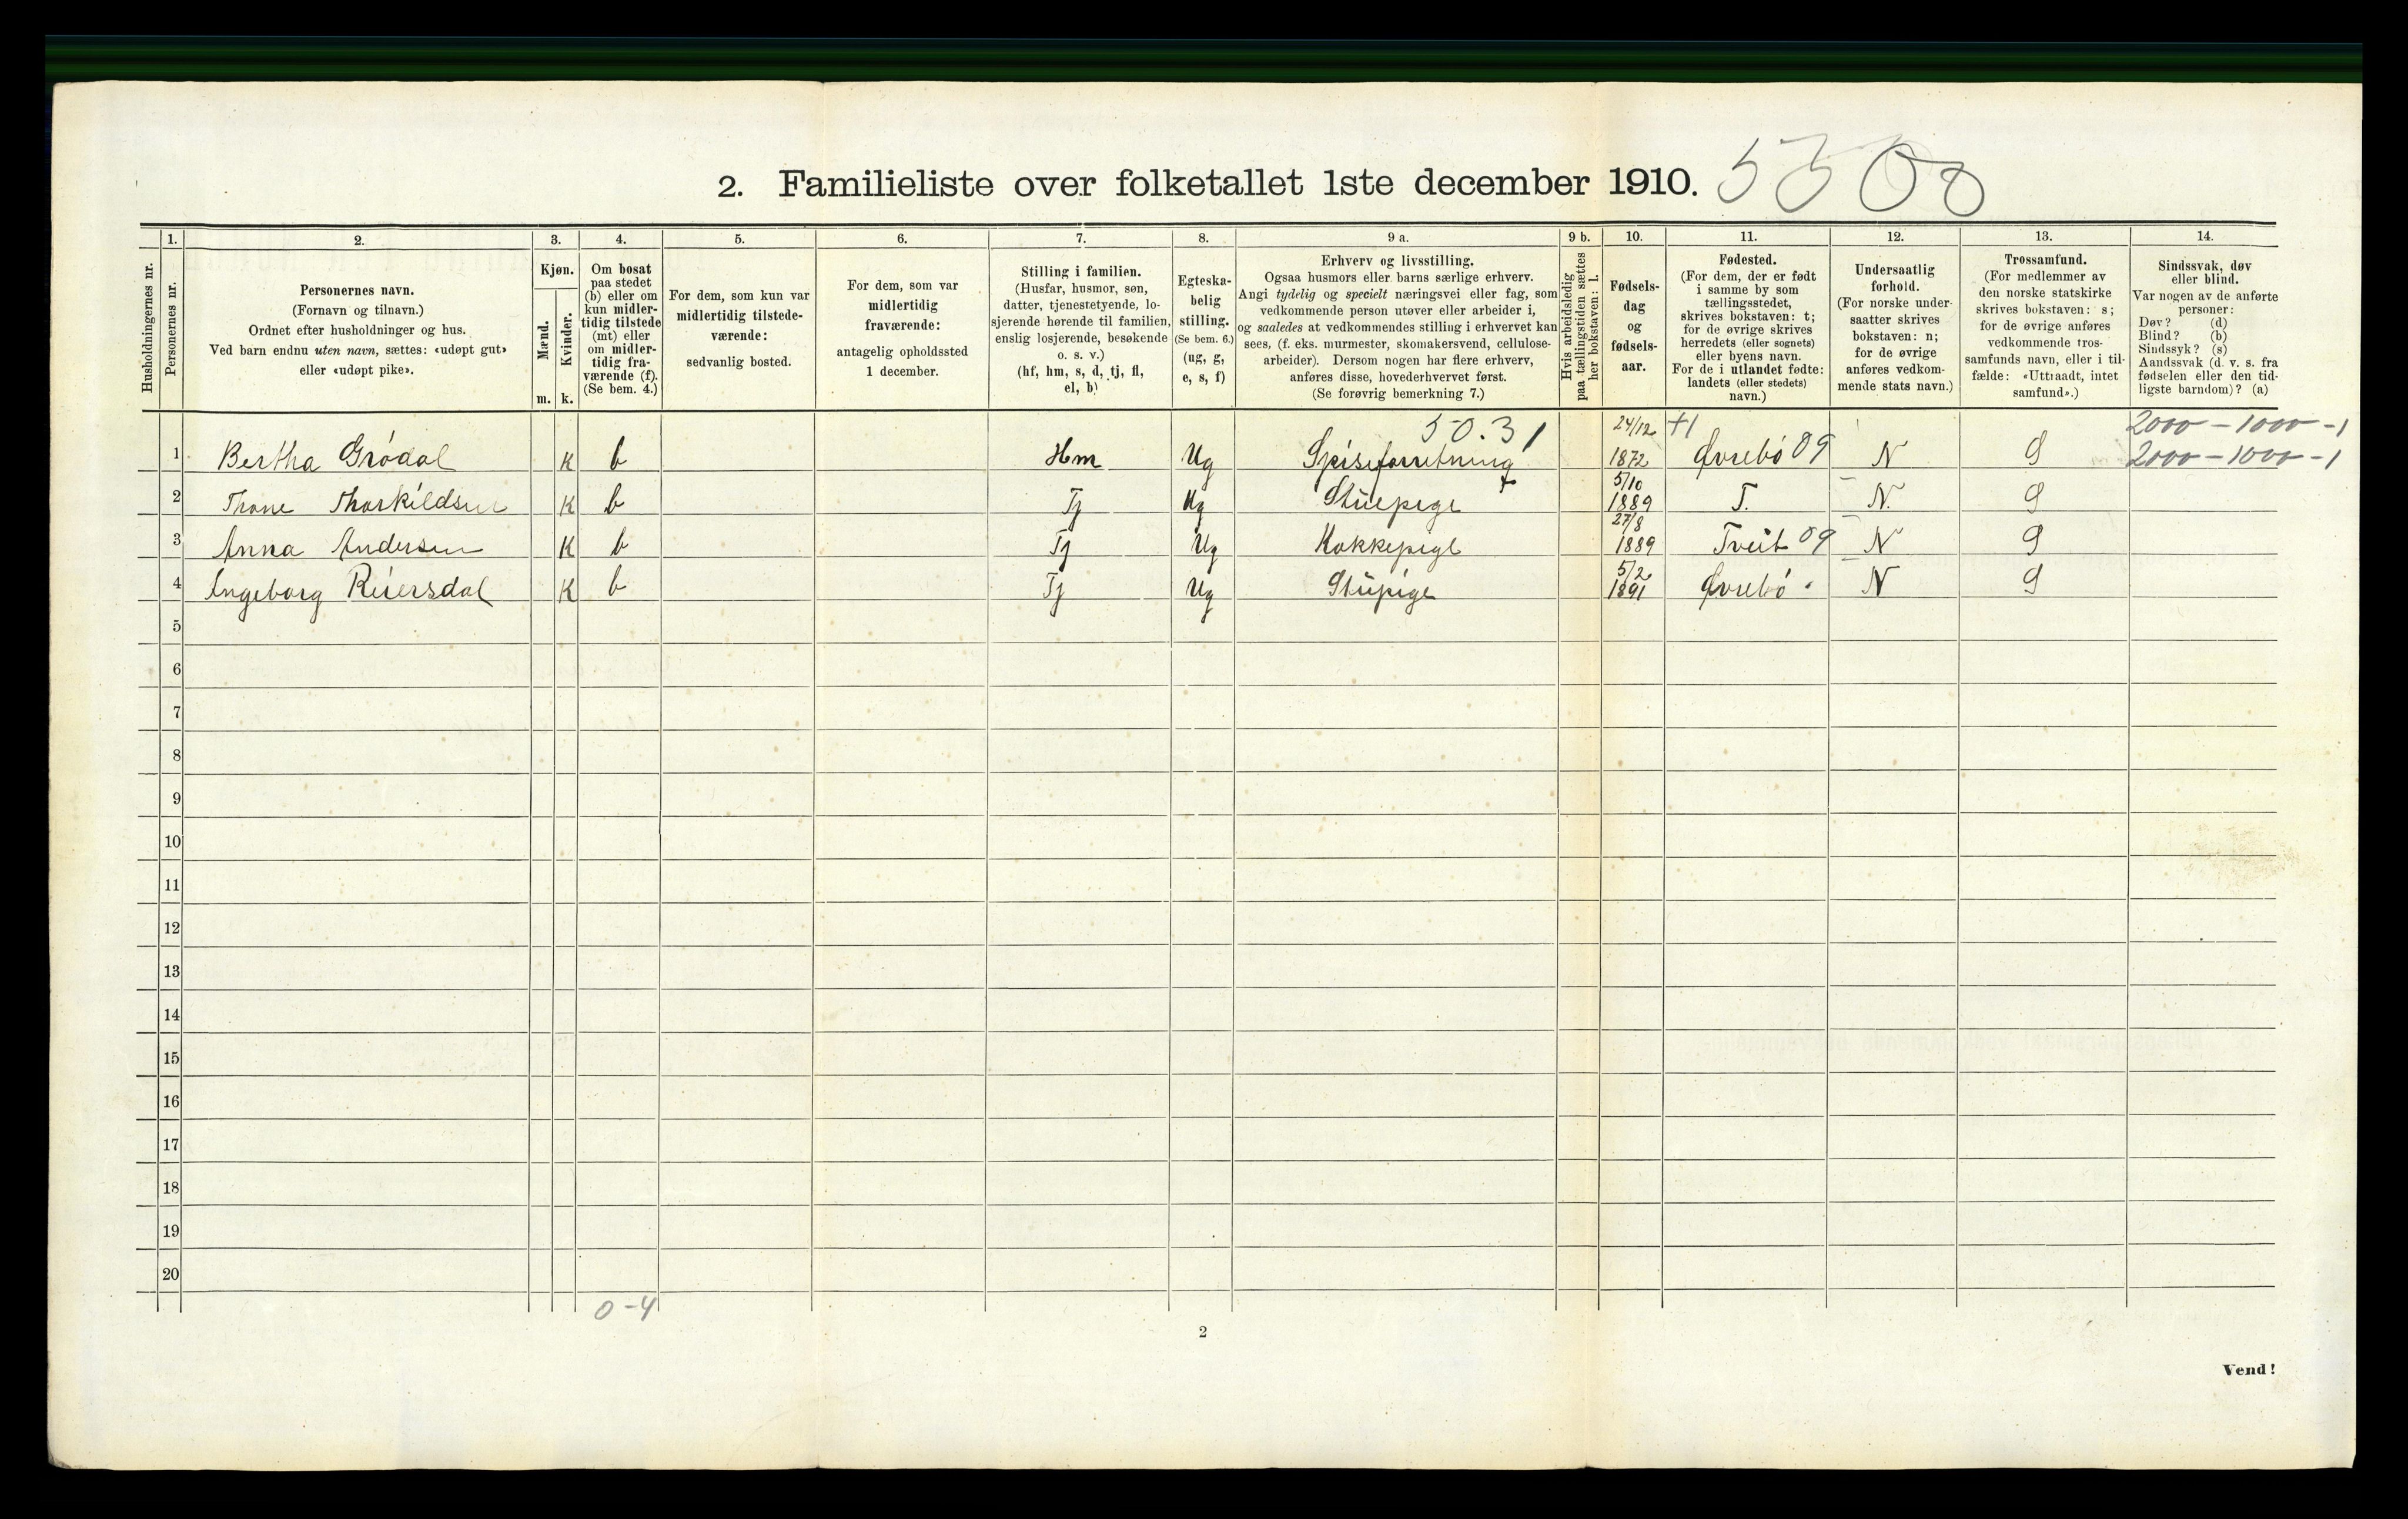 2. Familieliste over folketallet 1ste december 1910.
Husholdningernes nr.
1.
Personernes nr.
2.
Personernes navn.
(Fornavn og tilnavn.)
Ordnet efter husholdninger og hus.
Ved barn endnu uten navn, sættes: «udøpt gut»
eller «udøpt pike».
3.
Kjøn.
Mænd.
Kvinder.
m. k.
4.
Om bosat
paa stedet
(b) eller om
kun midler-
tidig tilstede
(mt) eller
om midler-
tidig fra-
værende (f).
(Se bem. 4.)
5.
For dem, som kun var
midlertidig tilstede-
værende:
sedvanlig bosted.
6.
For dem, som var
midlertidig
fraværende:
antagelig opholdssted
1 december.
7.
Stilling i familien.
(Husfar, husmor, søn,
datter, tjenestetyende, lo-
sjerende hørende til familien,
enslig losjerende, besøkende
o. s. v.)
(hf, hm, s, d, tj, fl,
el, b)
8.
Egteska-
belig
stilling.
(Se bem. 6.)
(ug, g,
e, s, f)
9 a.
Erhverv og livsstilling.
Ogsaa husmors eller barns særlige erhverv.
Angi tydelig og specielt næringsvei eller fag, som
vedkommende person utøver eller arbeider i,
og saaledes at vedkommendes stilling i erhvervet kan
sees, (f. eks. murmester, skomakersvend, cellulose-
arbeider). Dersom nogen har flere erhverv,
anføres disse, hovederhvervet først.
(Se forøvrig bemerkning 7.)
9 b.
Hvis arbeidsledig
paa tællingstiden sættes
her bokstaven: l.
10.
Fødsels-
dag
og
fødsels-
aar.
11.
Fødested.
(For dem, der er født
i samme by som
tællingsstedet,
skrives bokstaven: t;
for de øvrige skrives
herredets (eller sognets)
eller byens navn.
For de i utlandet fødte:
landets (eller stedets)
navn.)
12.
Undersaatlig
forhold.
(For norske under-
saatter skrives
bokstaven: n;
for de øvrige
anføres vedkom-
mende stats navn.)
13.
Trossamfund.
(For medlemmer av
den norske statskirke
skrives bokstaven: s;
for de øvrige anføres
vedkommende tros-
samfunds navn, eller i til-
fælde: «Uttraadt, intet
samfund».)
14.
Sindssvak, døv
eller blind.
Var nogen av de anførte
personer:
Døv? (d)
Blind? (b)
Sindssyk? (s)
Aandssvak (d. v. s. fra
fødselen eller den tid-
ligste barndom)? (a)
50.31 24/12 +1 2000 - 1000 - 1
1 Bertha Grödal K b Hm Ug Spiseforretning 1872 Øvrebö 09 N S 2000 - 1000 - 1
5/10
2 Thone Thorkildsen K b Tj Ug Stuepige 1889 T. N. S
27/8
3 Anna Andersen K b Tj Ug Kokkepige 1889 Tveit 09 N S
5/2
4 Ingeborg Reiersdal K b Tj Ug Stüpige 1891 Øvrebö N S
5
6
7
8
9
10
11
12
13
14
15
16
17
18
19
20
0-4
2
Vend!